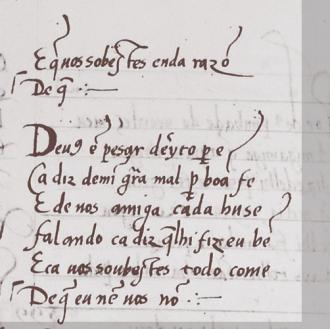 E q̃ uos sobestes enda razõ
De q̃ :—
Deus ẽ pesar deyto p̱ e
Ca diz demi g̃ra mal p̱ boa fe
E de nos amiga cada huse
falando ca diz q̃lhi fix eu bẽ
E ca uos soubestes todo come
De q̃ eu nẽ uos nõ :—